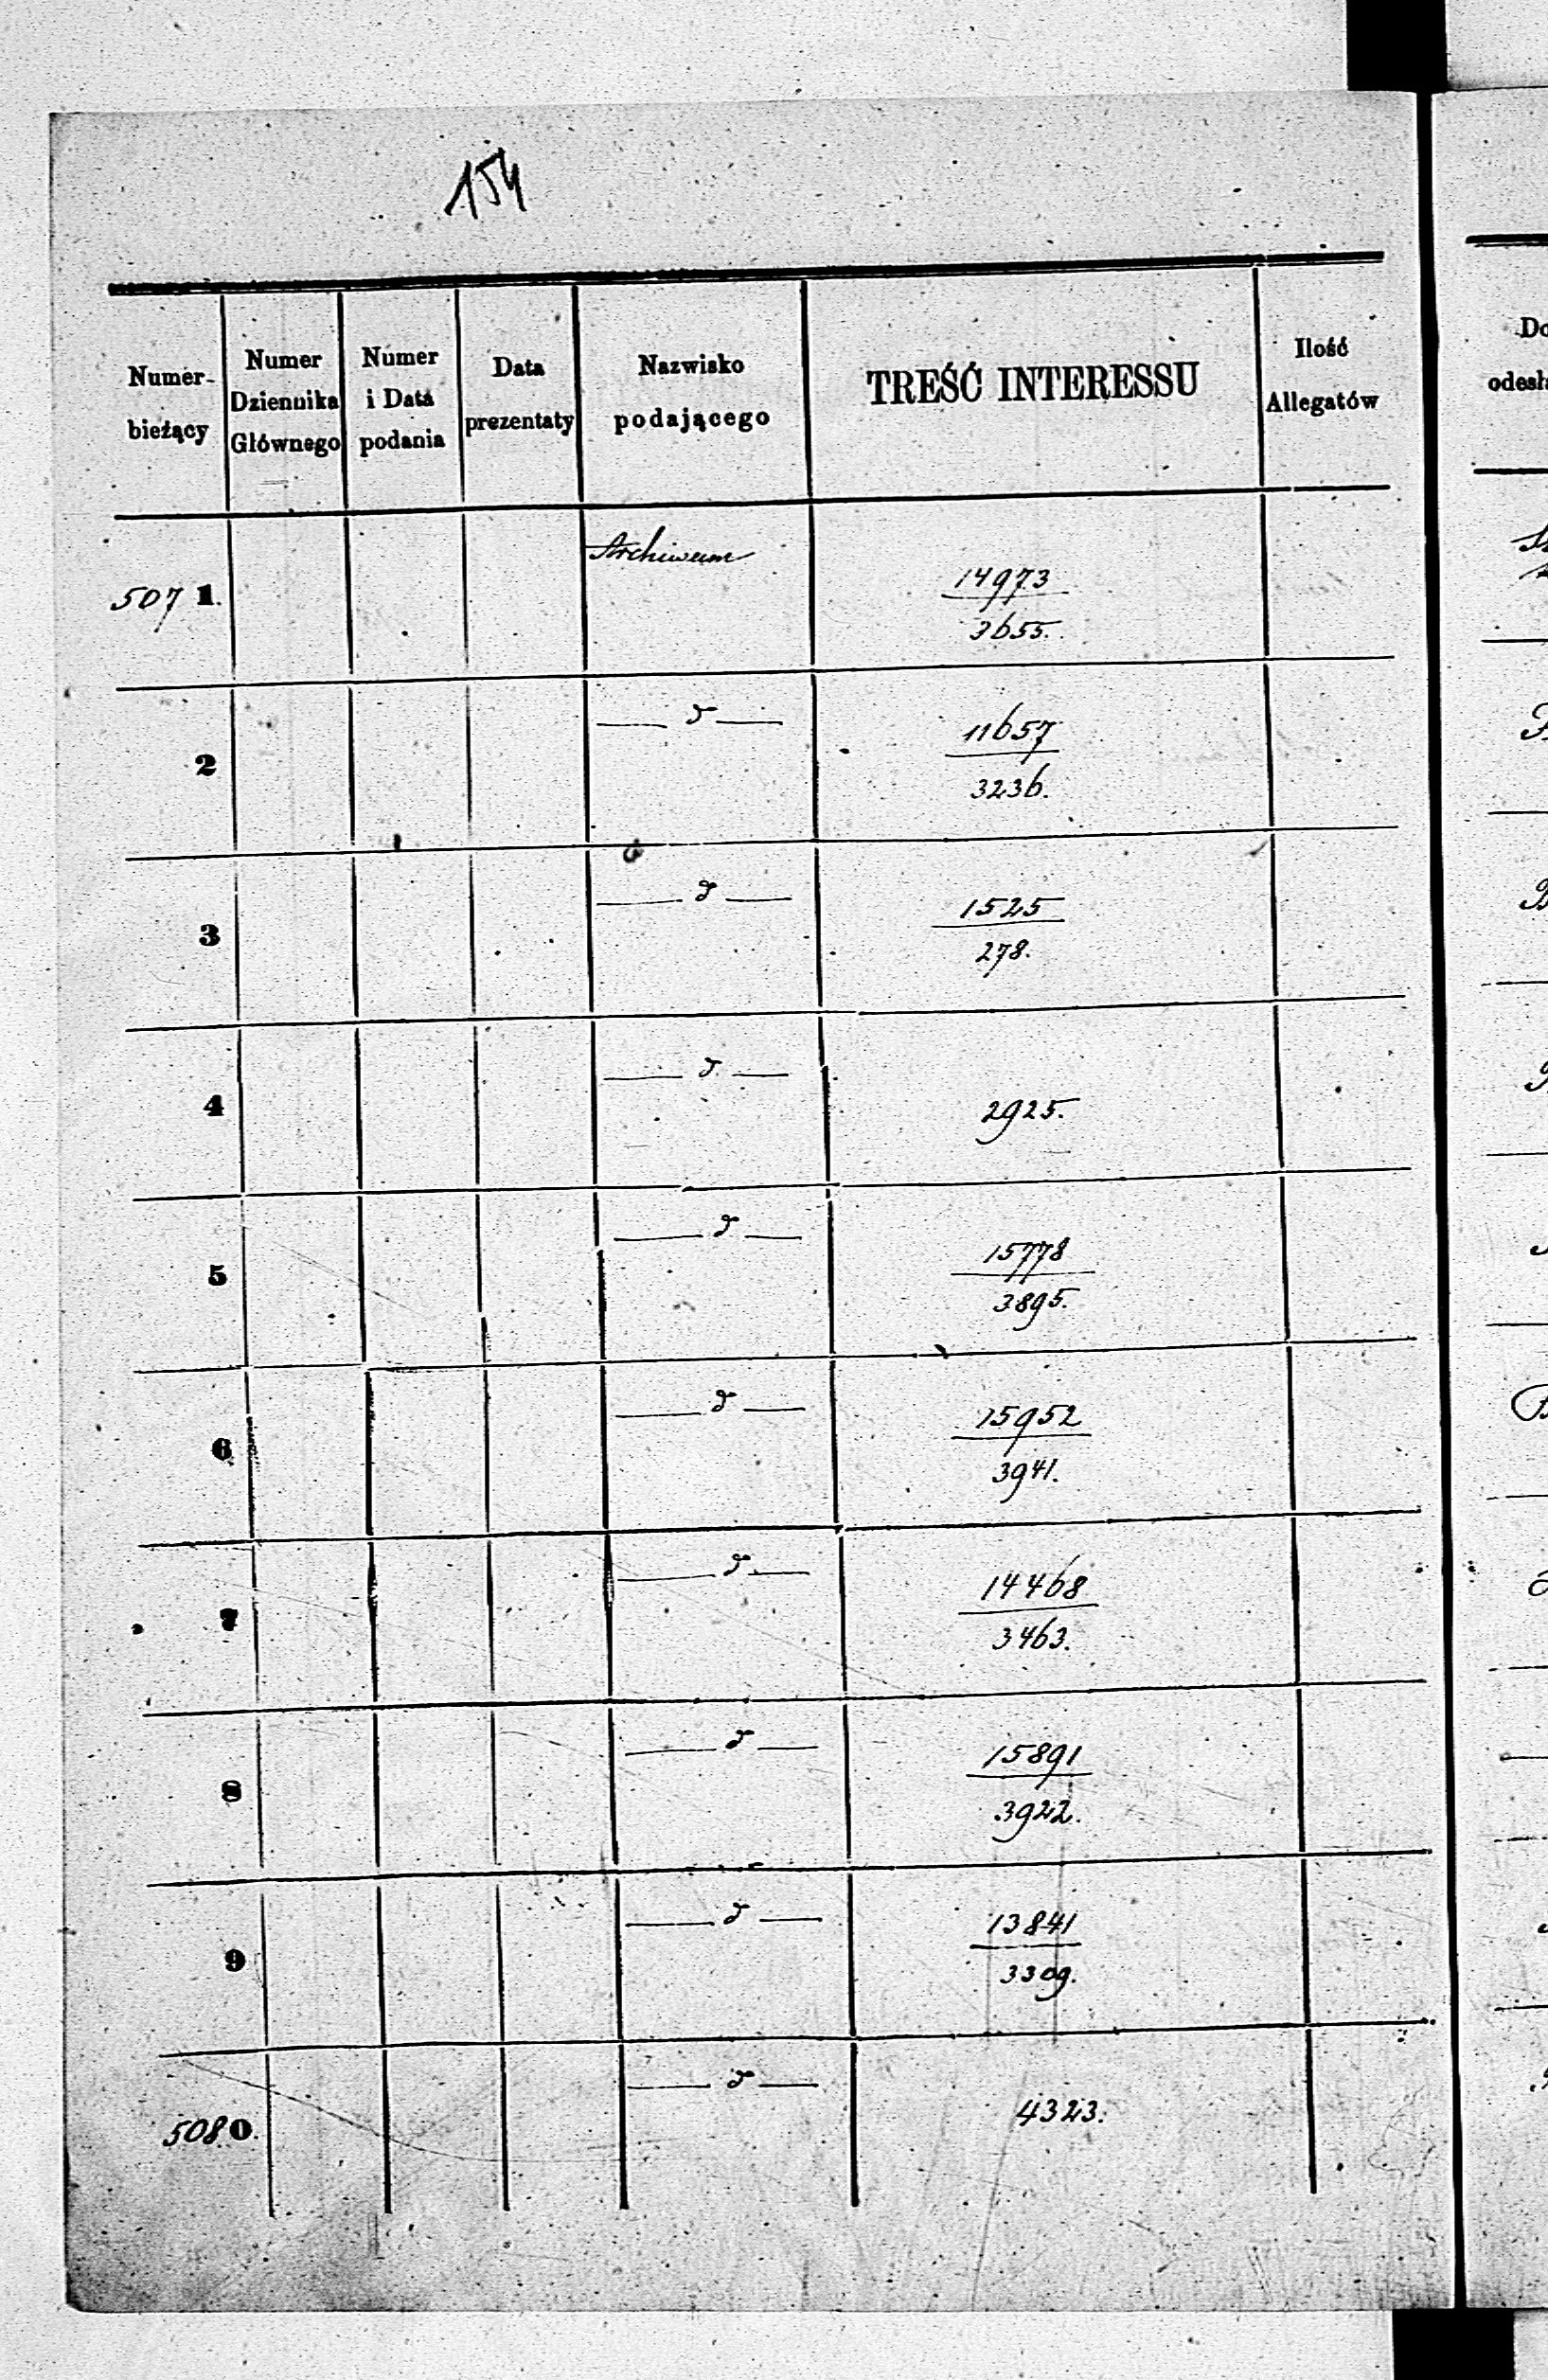 154
Numer bieżący
Numer Dziennika Głównego
Numer i Data podania
Data prezentaty
Nazwisko podającego
TREŚĆ INTERESSU
Ilość Allegatów
5071. Archiwum 14973
3655.
2 d 11657
3236.
3 d 1525
278.
4 d 2925.
5 d 15778
3895.
6 d 15952
3941.
7 d 14468
3463.
8 d 15891
3922.
9 d 13841
3309.
508.0. d 4323.